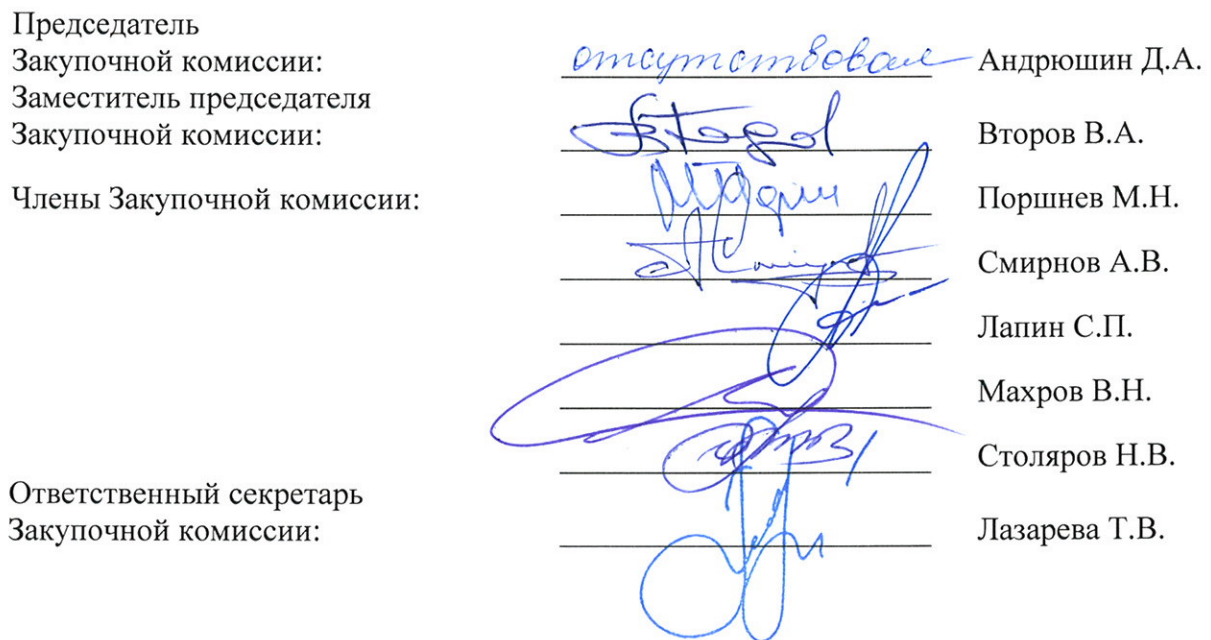 Председатель
Закупочной комиссии: отсутствовал Андрюшин Д.А.
Заместитель председателя
Закупочной комиссии: Второв В.А.
Члены Закупочной комиссии: Поршнев М.Н.
Смирнов А.В.
Лапин С.П.
Махров В.Н.
Столяров Н.В.
Ответственный секретарь
Закупочной комиссии: Лазарева Т.В.